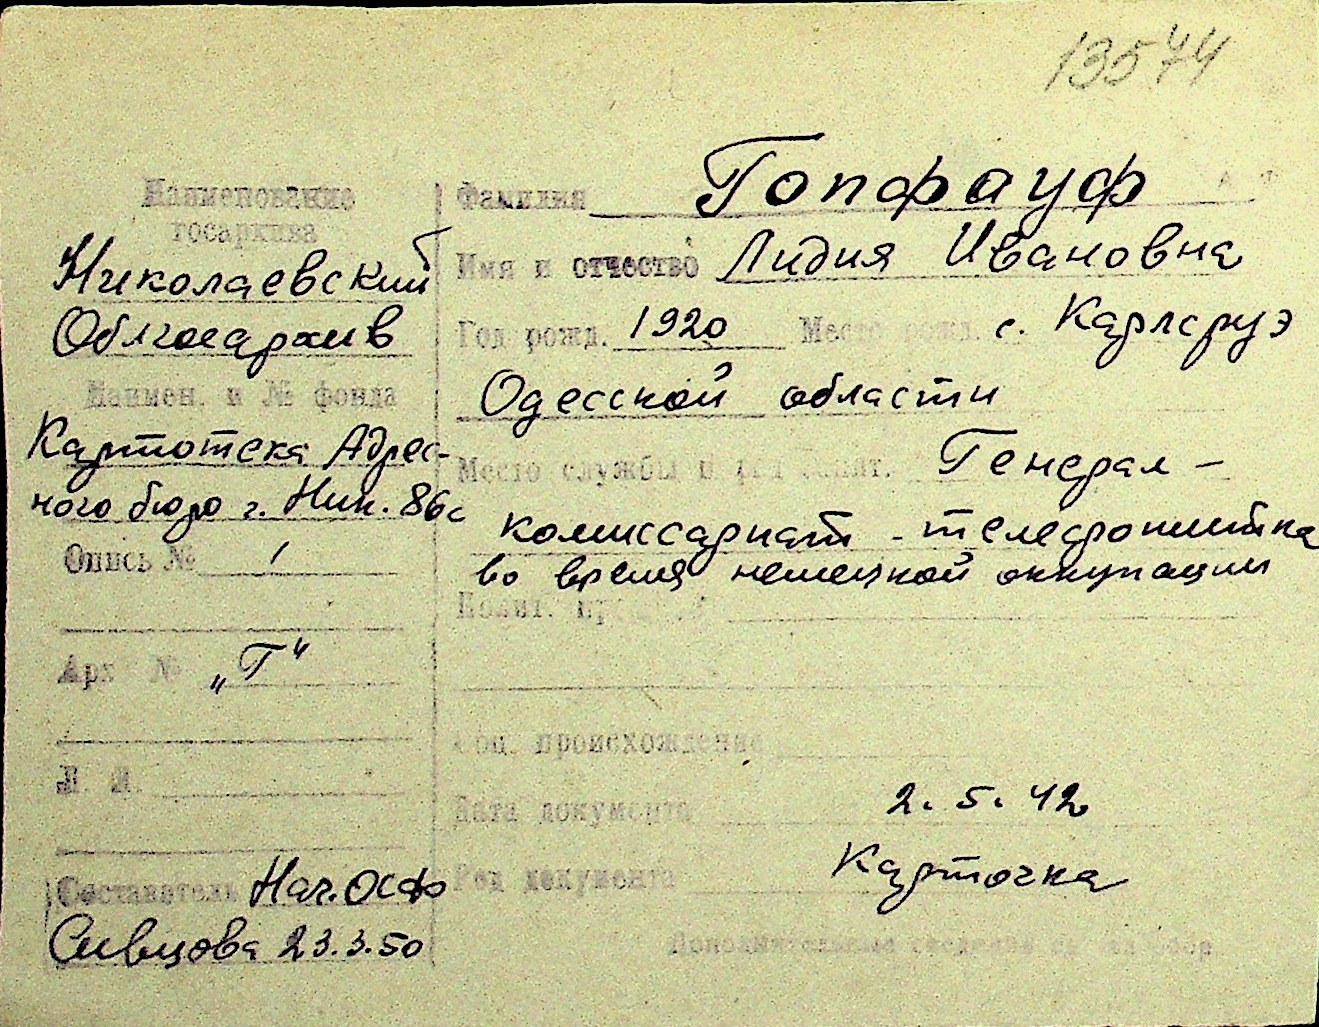 13574
Наименование
госархива
Николаевский
Облгосархив
Наимен. и № фонда
Картотека Адрес-
ного бюро г. Ник. 86с
Опись № 1
Арх № „Г“
Л. Л.
Составитель Нач. ОСФ
Сивцова 23.3.50
Фамилия Гопфауф
Имя и отчество Лидия Ивановна
Год рожд. 1920 Место рожд. с. Карлсруэ
Одесской области
Место службы и Генерал-
комиссариат - телефонистка
во время немецкой оккупации
Полит.
Соц. происхождение
Дата документа 2.5.42
Род документа Карточка
Дополнительные сведения